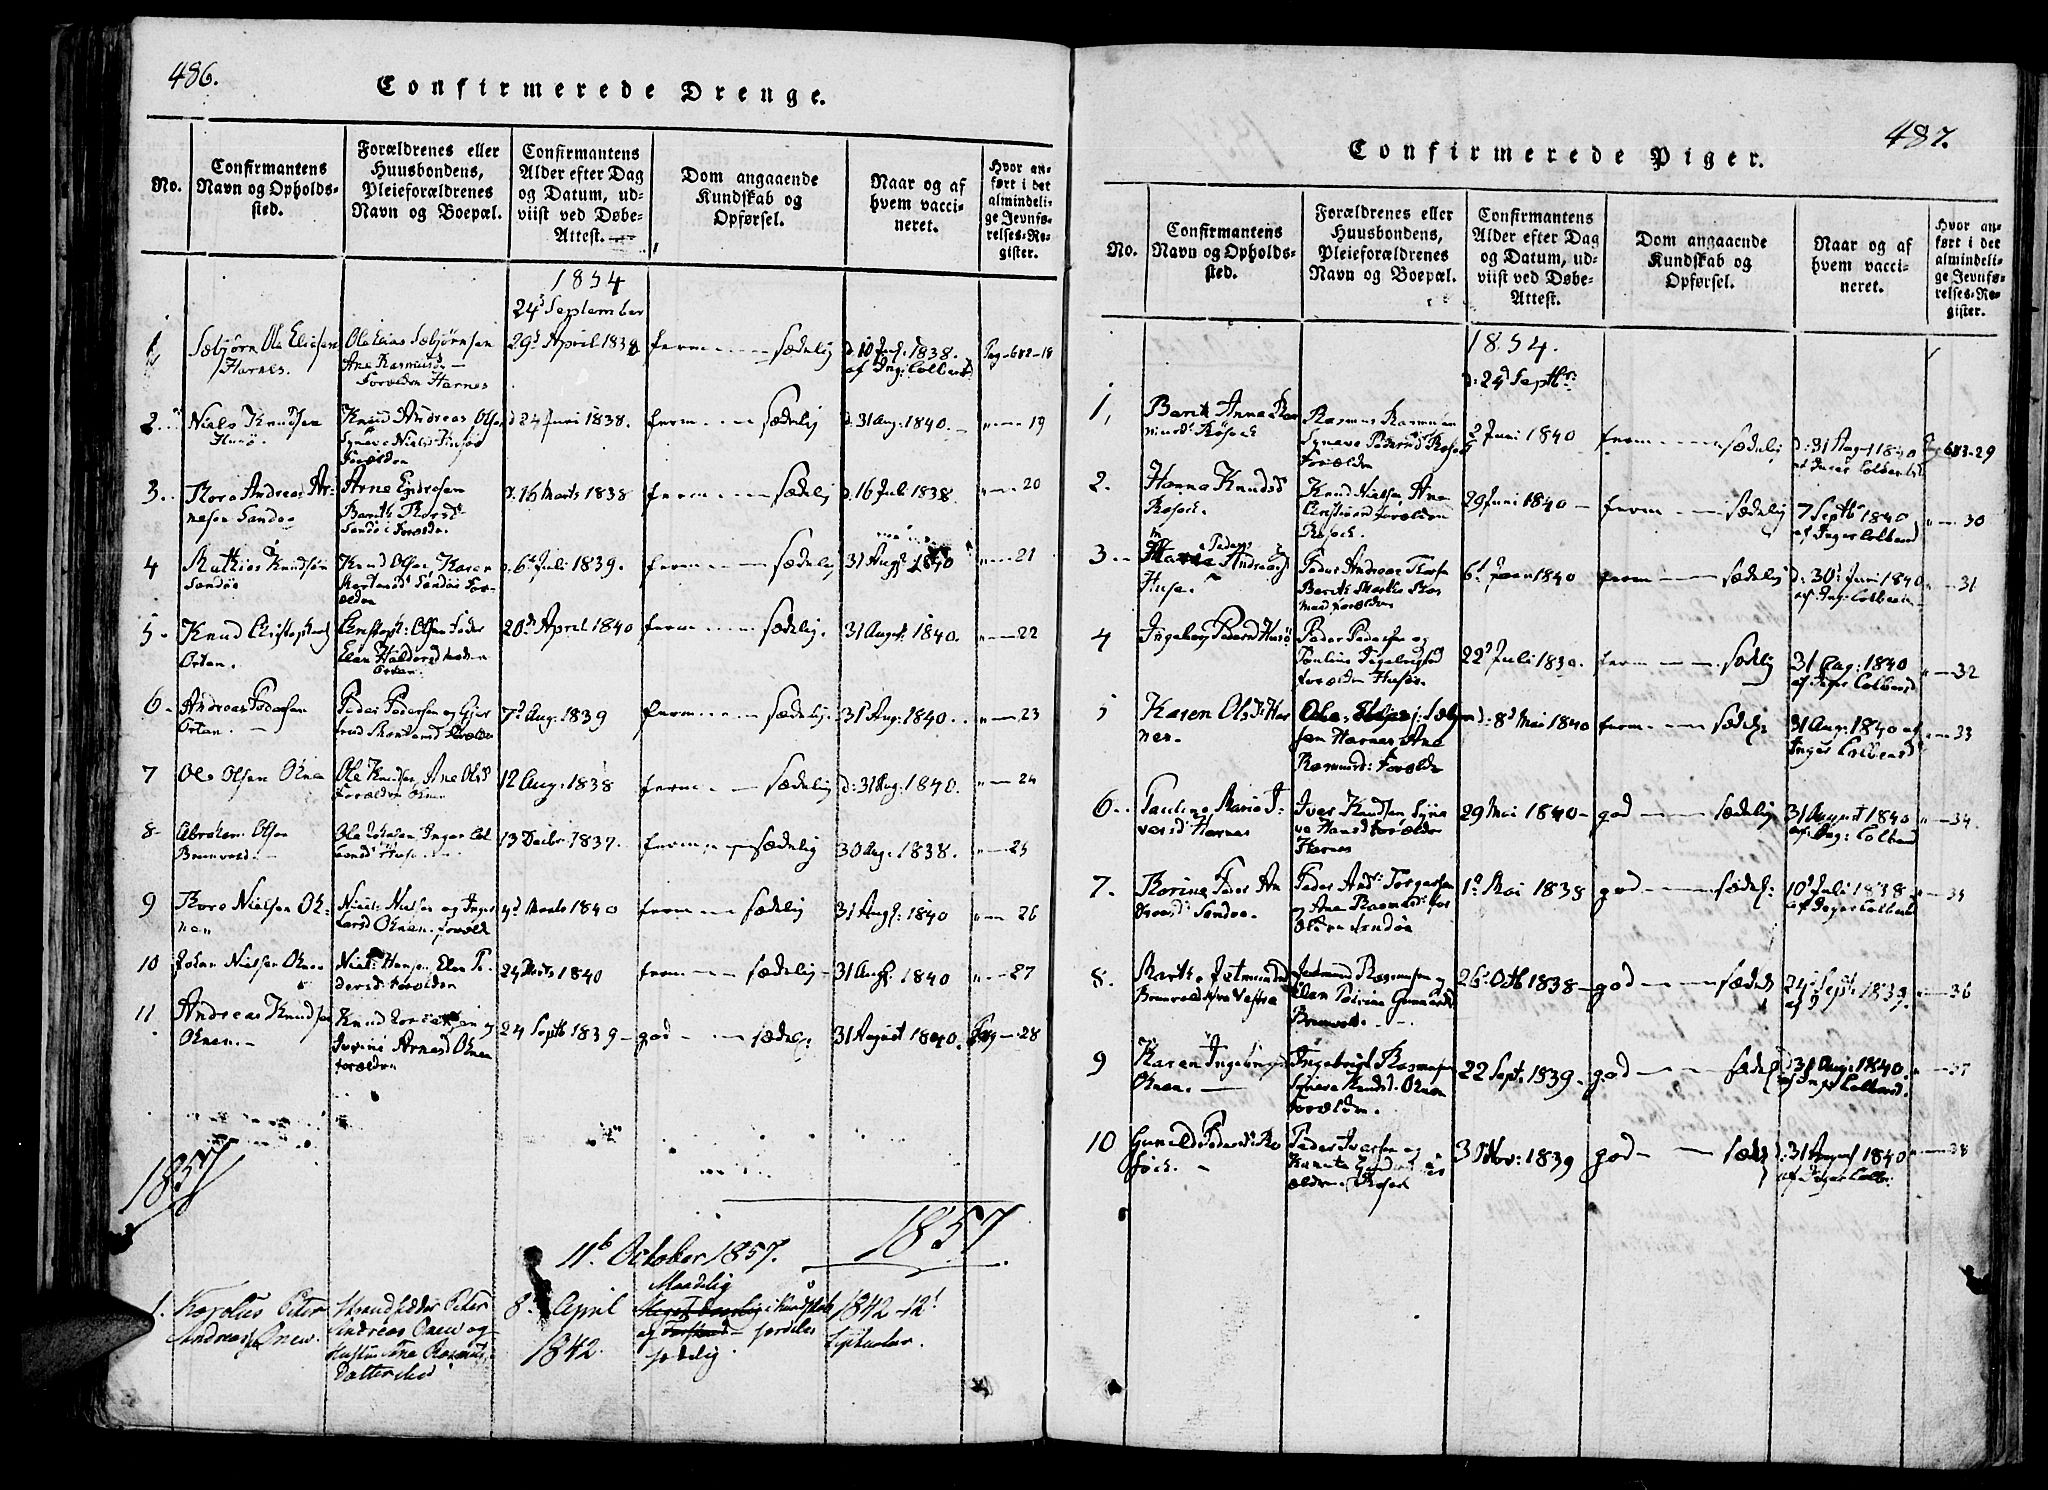 486.
Confirmerede Drenge.
No.
Confirmantens
Navn og Opholds-
sted.
Forældrenes eller
Huusbondens,
Pleieforældrenes
Navn og Boepæl.
Confirmantens
Alder efter Dag
og Datum, ud-
viist ved Døbe-
Attest.
Dom angaaende
Kundskab og
Opførsel.
Naar og af
hvem vacci-
neret.
Hvor an-
ført i det
almindeli-
ge Jevnfø-
relses-Re-
gister.
1854
24d September
1 Sæbjørn Ole Eliesen
Harnes.
Ole Elias Sæbjørnsen
Ane Rasmusd
Forældre Harnes
29d April 1838 ferm sædelig
d. 10 Juli 1838.
af Ing: Colbend
Pag 682-18
2 Niels Knudsen
Husø.
Knud Andreas Olsen
Synave Nielsd Husøe
Forældre
d 24 Juni 1838. ferm sædelig d. 31 Aug. 1840. 19
3 Thore Andreas Ar-
nesen Sandøe
Arne Endresen
Barith Thoresd
Sandøe Forældre.
d. 16 Marts 1838 ferm sædelig d. 16 Juli 1838. 20
4 Mathias Knudsen
Sandøe
Knud Olsen Karen
Sandøe For-
ældre
d. 6d Juli 1839. ferm sædelig 31 Augs 1840 21
5 Knud
Ortan.
Christoph: Olsen Fader
Elen Haldorsd Moder
Ortan.
20d April 1840 ferm sædelig. 31 August. 1840. 22
6 Andreas Pedersen
Ortan.
Peder Pedersen og Gjer
trud Forældre
7d Aug. 1839 ferm sædelig. 31 Aug: 1840. 23
7 Ole Olsen Onen
Ole Knudsen Ane Olsd
Forældre Onen
12 Aug: 1838 ferm sædelig d: 31 Aug: 1840. 24
8 Abraham Olsen
Bremvold.
Ole Inger
13 Decbr 1837. ferm sædelig 30 Aug. 1838. 25
9 Thore Nielsen O-
nen
Niels Nielsen og Inger
Larsd Onen. forældre
4d Marts 1840 ferm sædelig 31 Augs: 1840 26
10 Johan Nielsen Onen
Niels Hansen, Elen Pe-
dersd Forældre
24 Marts 1840 ferm sædelig 31 Augs. 1840 27
11 Andreas Knudsen
Onen.
Knud og
Arnesd Onen
forældre
24 Septb 1839 god sædel: 31 August 1840. 28
1857
1857
11te October 1857.
1. Karolus Peter
Andreas Onen.
Strandsidder Peter
Andreas Onen og
Hustru Ane Rasmus
Datter
8de April
1842.
Maadelig
i Kundskab
af
sædelig.
1842 12t
487.
Confirmerede Piger.
No.
Confirmantens
Navn og Opholds-
sted.
Forældrenes eller
Huusbondens,
Pleieforældrenes
Navn og Boepæl.
Confirmantens
Alder efter Dag
og Datum, ud-
viist ved Døbe-
Attest.
Dom angaaende
Kundskab og
Opførsel.
Naar og af
hvem vacci-
neret.
Hvor an-
ført i det
almindeli-
ge Jevnfø-
relses-Re-
gister.
1854.
d: 24d Septbr
1, Barit Anna Ras
musd Røsock
Rasmus Rasmusen
Synave Pedersd Røsock
Forældre
2 Juni 1840 ferm sædelig
d: 31 Aug 1840
af Inger Colbensd
Pag 683-29
2. Hanna Knudsd
Røsock.
Knud Nielsen Ane
Christiansd Forældre
Røsock.
29 Juni 1840 ferm sædelig
7 Septb 1840
af Inger Colbensd
30
3 Peders
Husøe
Peder Andreas
Barith Marthe Ras
musd forældre
6d 1840 ferm sædelig
d: 30d Juni 1840
af Ing: Colbensd
31
4 Ingeborg Pedersd Husø
Peder Pedersen og
Ingebrigtsd
forældre Husøe.
22d Juli 1839. ferm sædelig
31 Aug: 1840
af Inger Colbensd
32
5 Karen Olsd Har
nes.
Ole Sæbjørn
sen Harnes, Ane
Rasmusd: Forældre
d: 8d Mai 1840 ferm sædel:
31 Aug. 1840 af
Inger Colbensd
33
6 Pauline Marie I-
versd Harnes
Iver Knudsen Syna
ve Hansd Forældre
Harnes
29 Mai 1840 god sædelig
31 August 1840
af Ing: Colbend
34
7. Karine Peder An
dreasd: Sandøe.
Peder And: Torgersen
og Ane Rasmusd: for
ældre Sandøe
1d Mai 1838 god sædel:
10d Juli 1838
af Inger Colbend
35
8. Marthe Jetmundsd
Bremvold
Jetmund Rasmusen og
Elen Petrine Gunnarsd
Bremvold.
26d Octb 1838 god sædel:
24d Sept: 1839.
36
9 Karen Ingebrigtsd
Onen.
Ingebrigt Rasmusen
Synave Knudsd: Onen
Forældre.
22 Sept: 1839 god sædel:
d 31 Aug: 1840.
af Ing: Colbensd.
37
10 Gunild Pedersd: Rø
sock.
Peder Iversen og
for
ældre. Røsock
3d Nov: 1839 god sædel:
d: 31 August 1840
af Inger Colb:
38